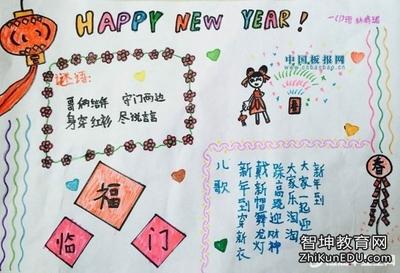 HAPPY NEW YEAR!
中国板报网
谜语:
哥俩结伴 守门两边
身穿红衫 尽说吉言
福
临
门
春
儿歌
新年到穿新衣
戴新帽舞龙灯
踩高跷迎财神
大家乐淘淘
大家一起迎
新年到
智坤教育网
ZhiKunEDU.COM